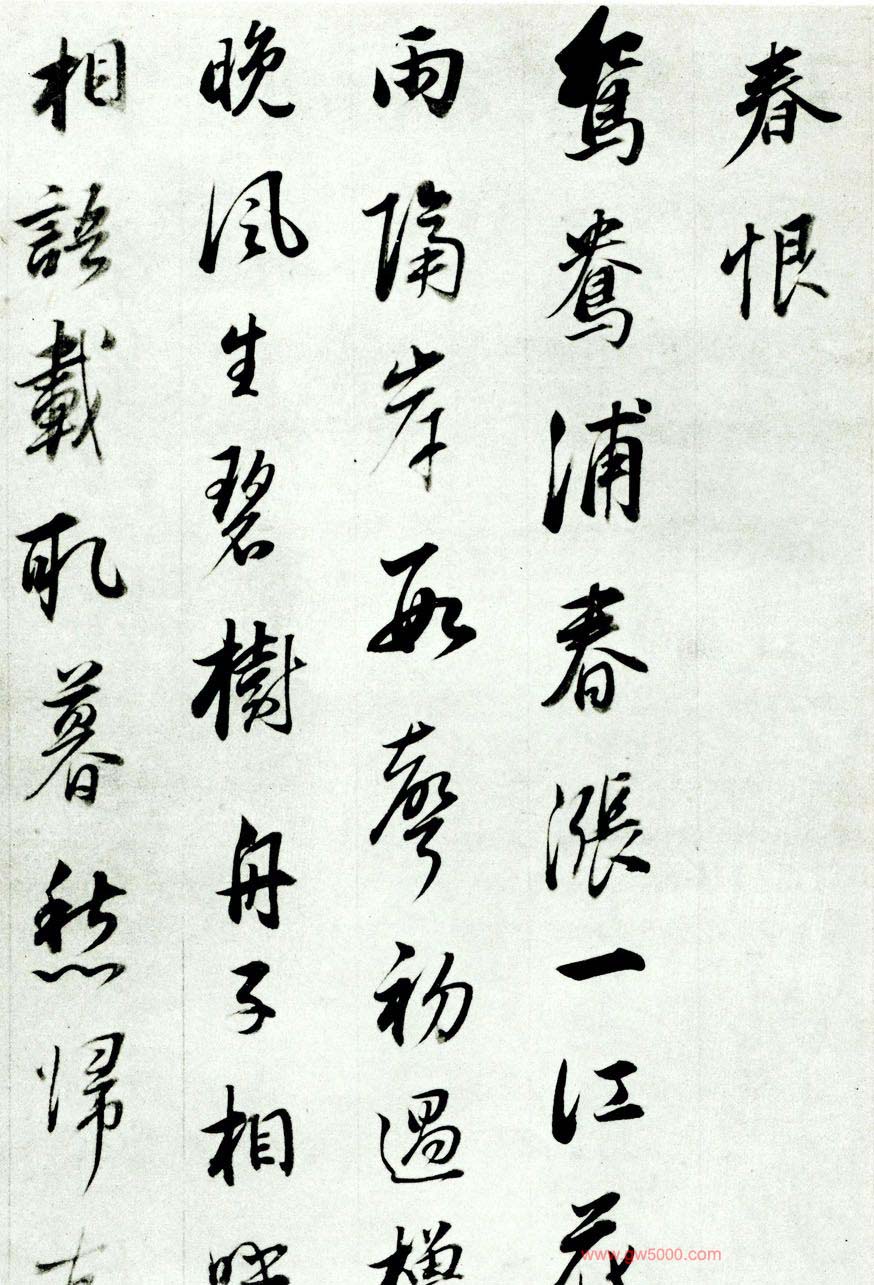 春恨
鴛鴦浦春漲一江花
雨隔岸數聲初過櫓
晚風生碧樹舟子相呼
相語載取暮愁歸
www.gw5000.com